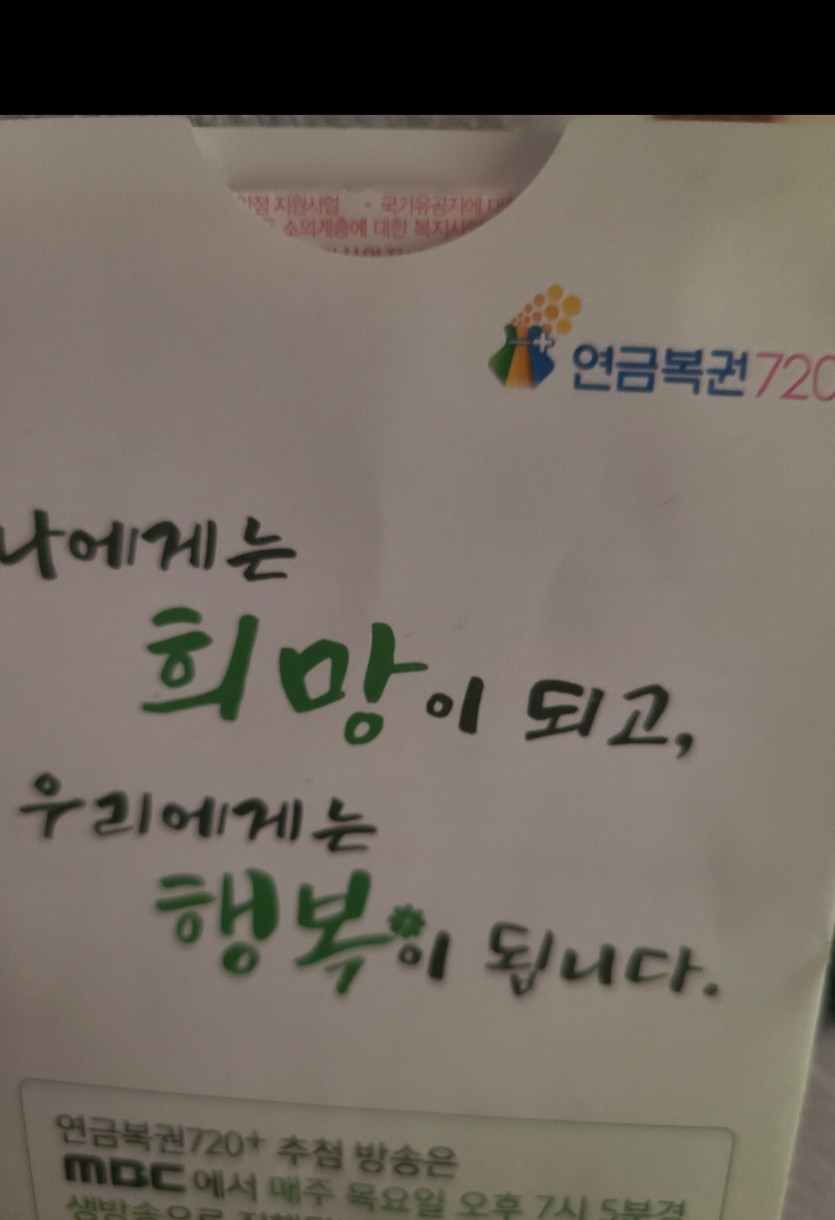 지원사업 - 국가유공자에 대한
소외계층에 대한 복지사업
연금복권720
나에게는
희망이 되고,
우리에게는
행복이 됩니다.
연금복권720+ 추첨 방송은
MBC에서 매주 목요일 오후 7시 5분경
생방송으로